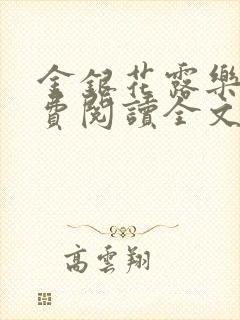 金銀花露樂
費閱讀全文
高雲翔